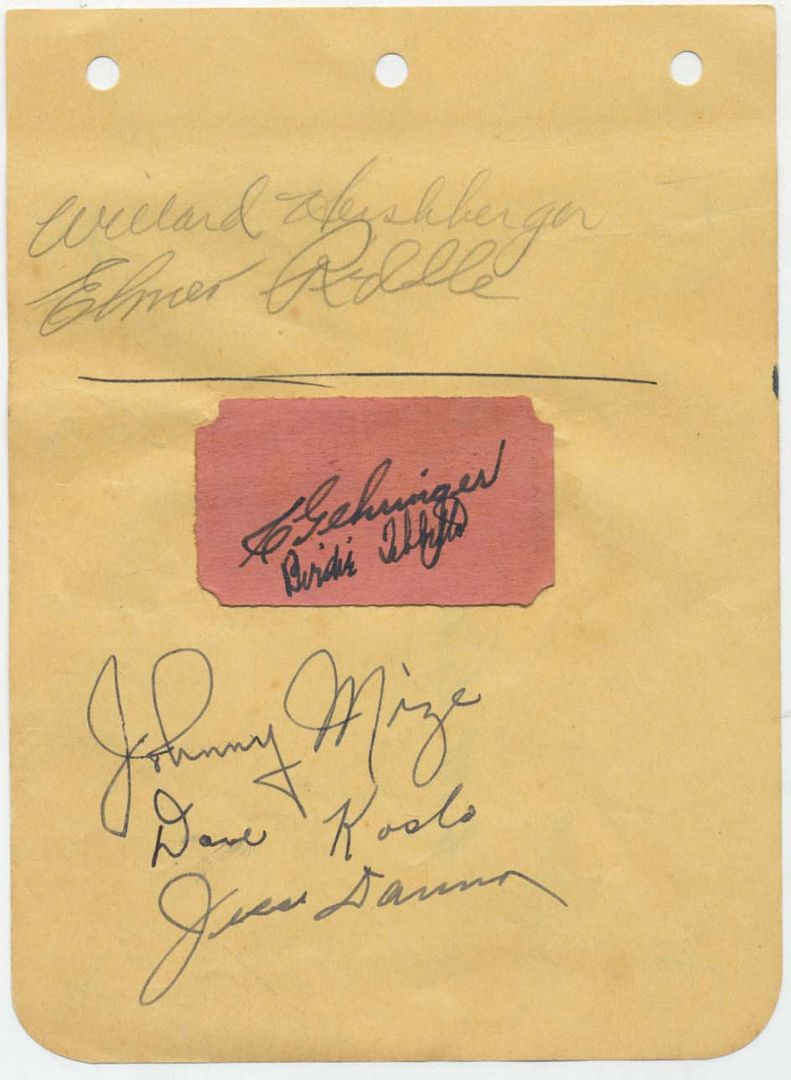 Willard Hershberger
Elmer Riddle
C Gehringer
Birdie Tebbetts
Johnny Mize
Dave Koslo
Jess Danna